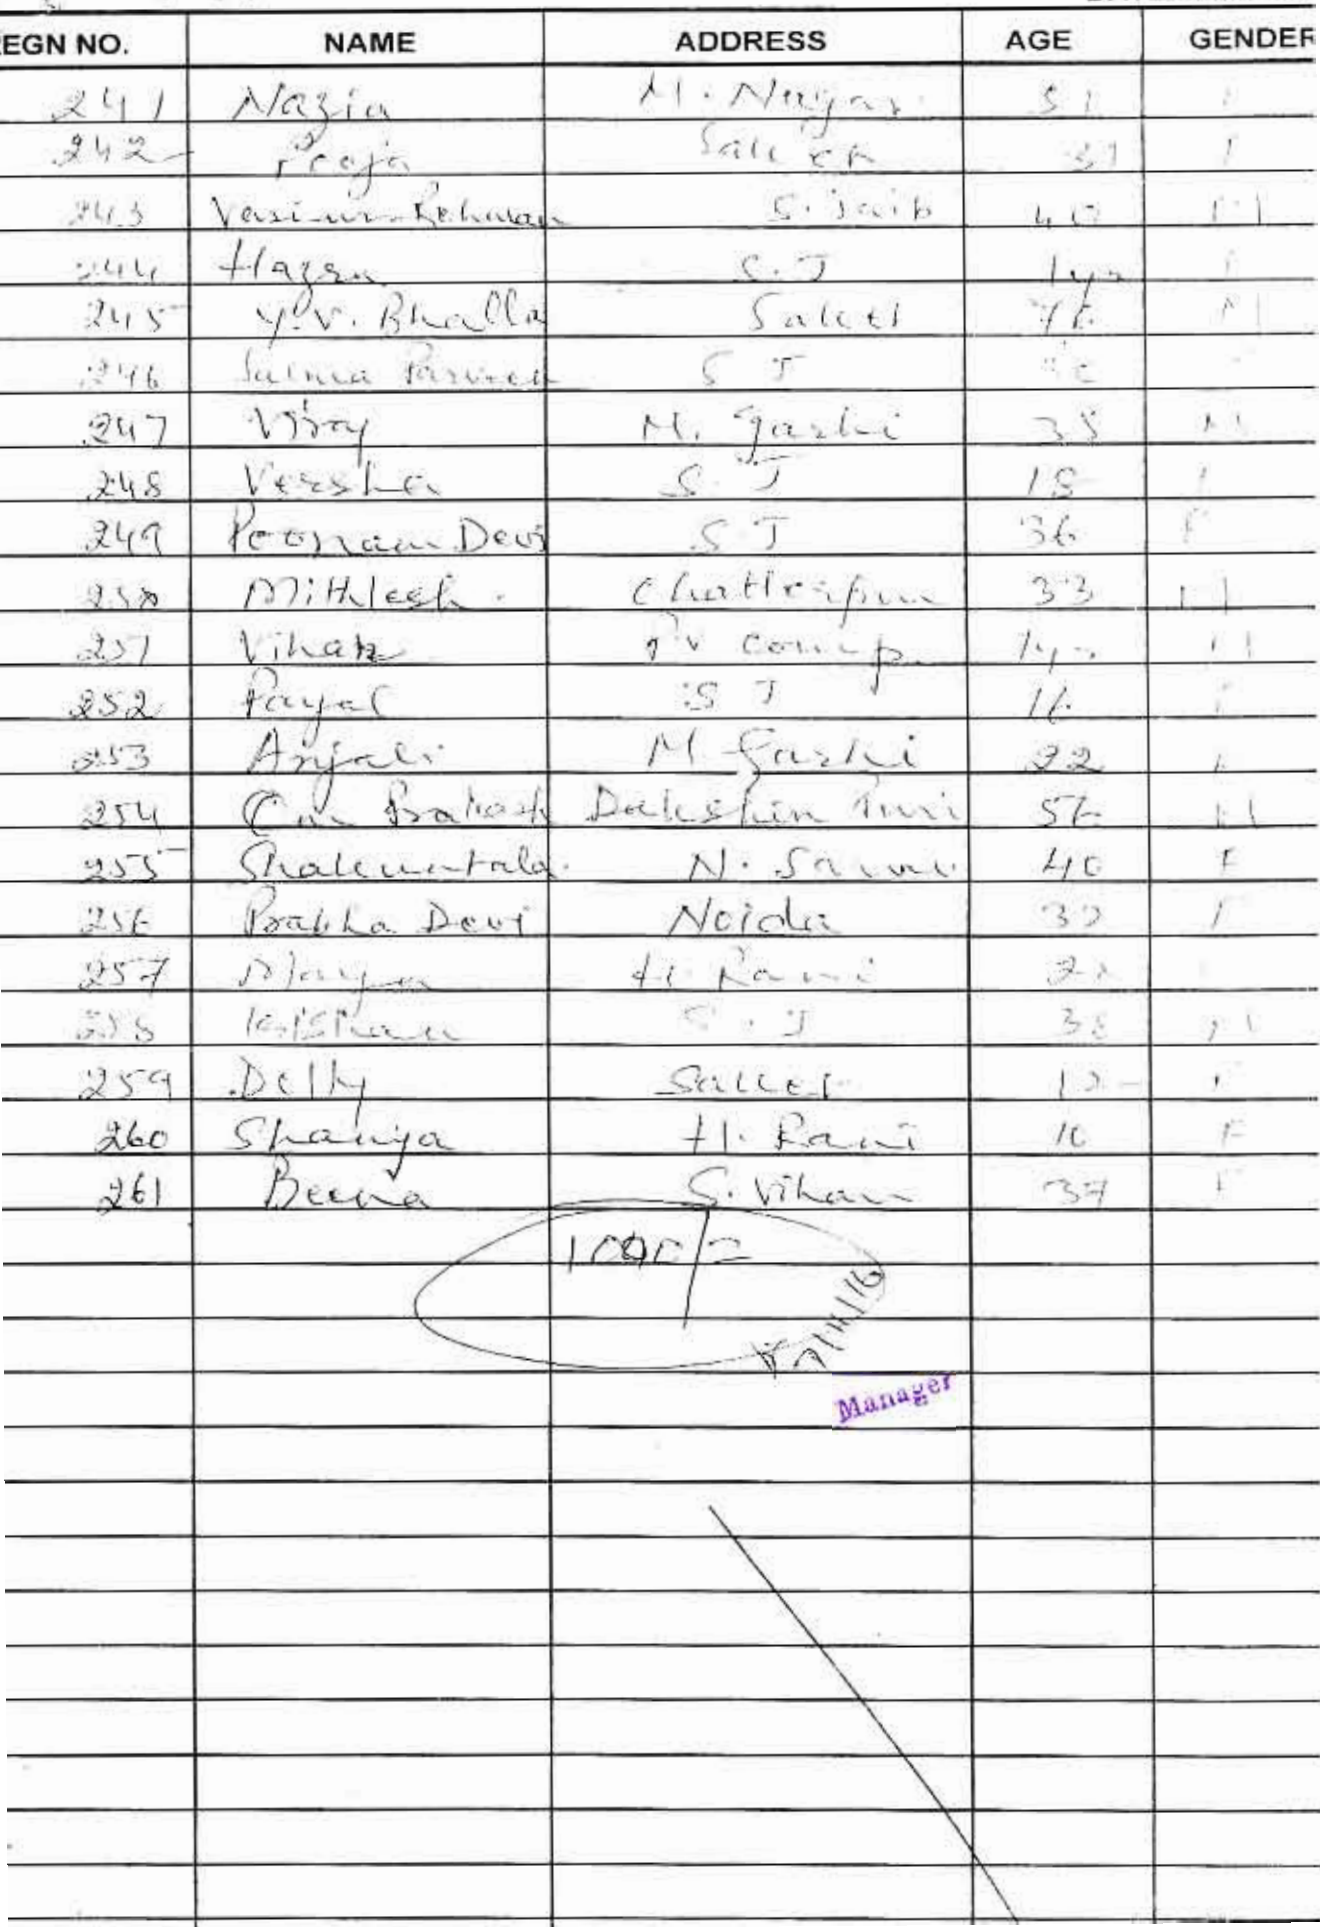 EGN NO. NAME ADDRESS AGE GENDER
241 Nazia M. Nagar 51 F
242 Pooja Saket 31 F
243 Vasi-ur-Rehman S. Jaib 40 M
244 Hazra S.J 1yr F
245 Y.V. Bhalla Saket 76 M
246 Salma Parveen S J
247 Viray M. Garhi 38 M
248 Versha S J 18 F
249 Poonam Devi S J 36 F
250 Mithlesh Chatterpur 33 M
251 Vihan camp 1yr M
252 Payal S J 16 F
253 Anjali M Garhi 22 F
254 Om Prakash Dakshin Puri 56 M
255 Shakuntala N. Sarai 40 F
256 Prabha Devi Noida 32 F
257 H. Rani
258 Krishan S.J 38 M
259 Dolly Saket 12 F
260 Shanya H. Rani 10 F
261 Beena S. Vihar 37 F
Manager